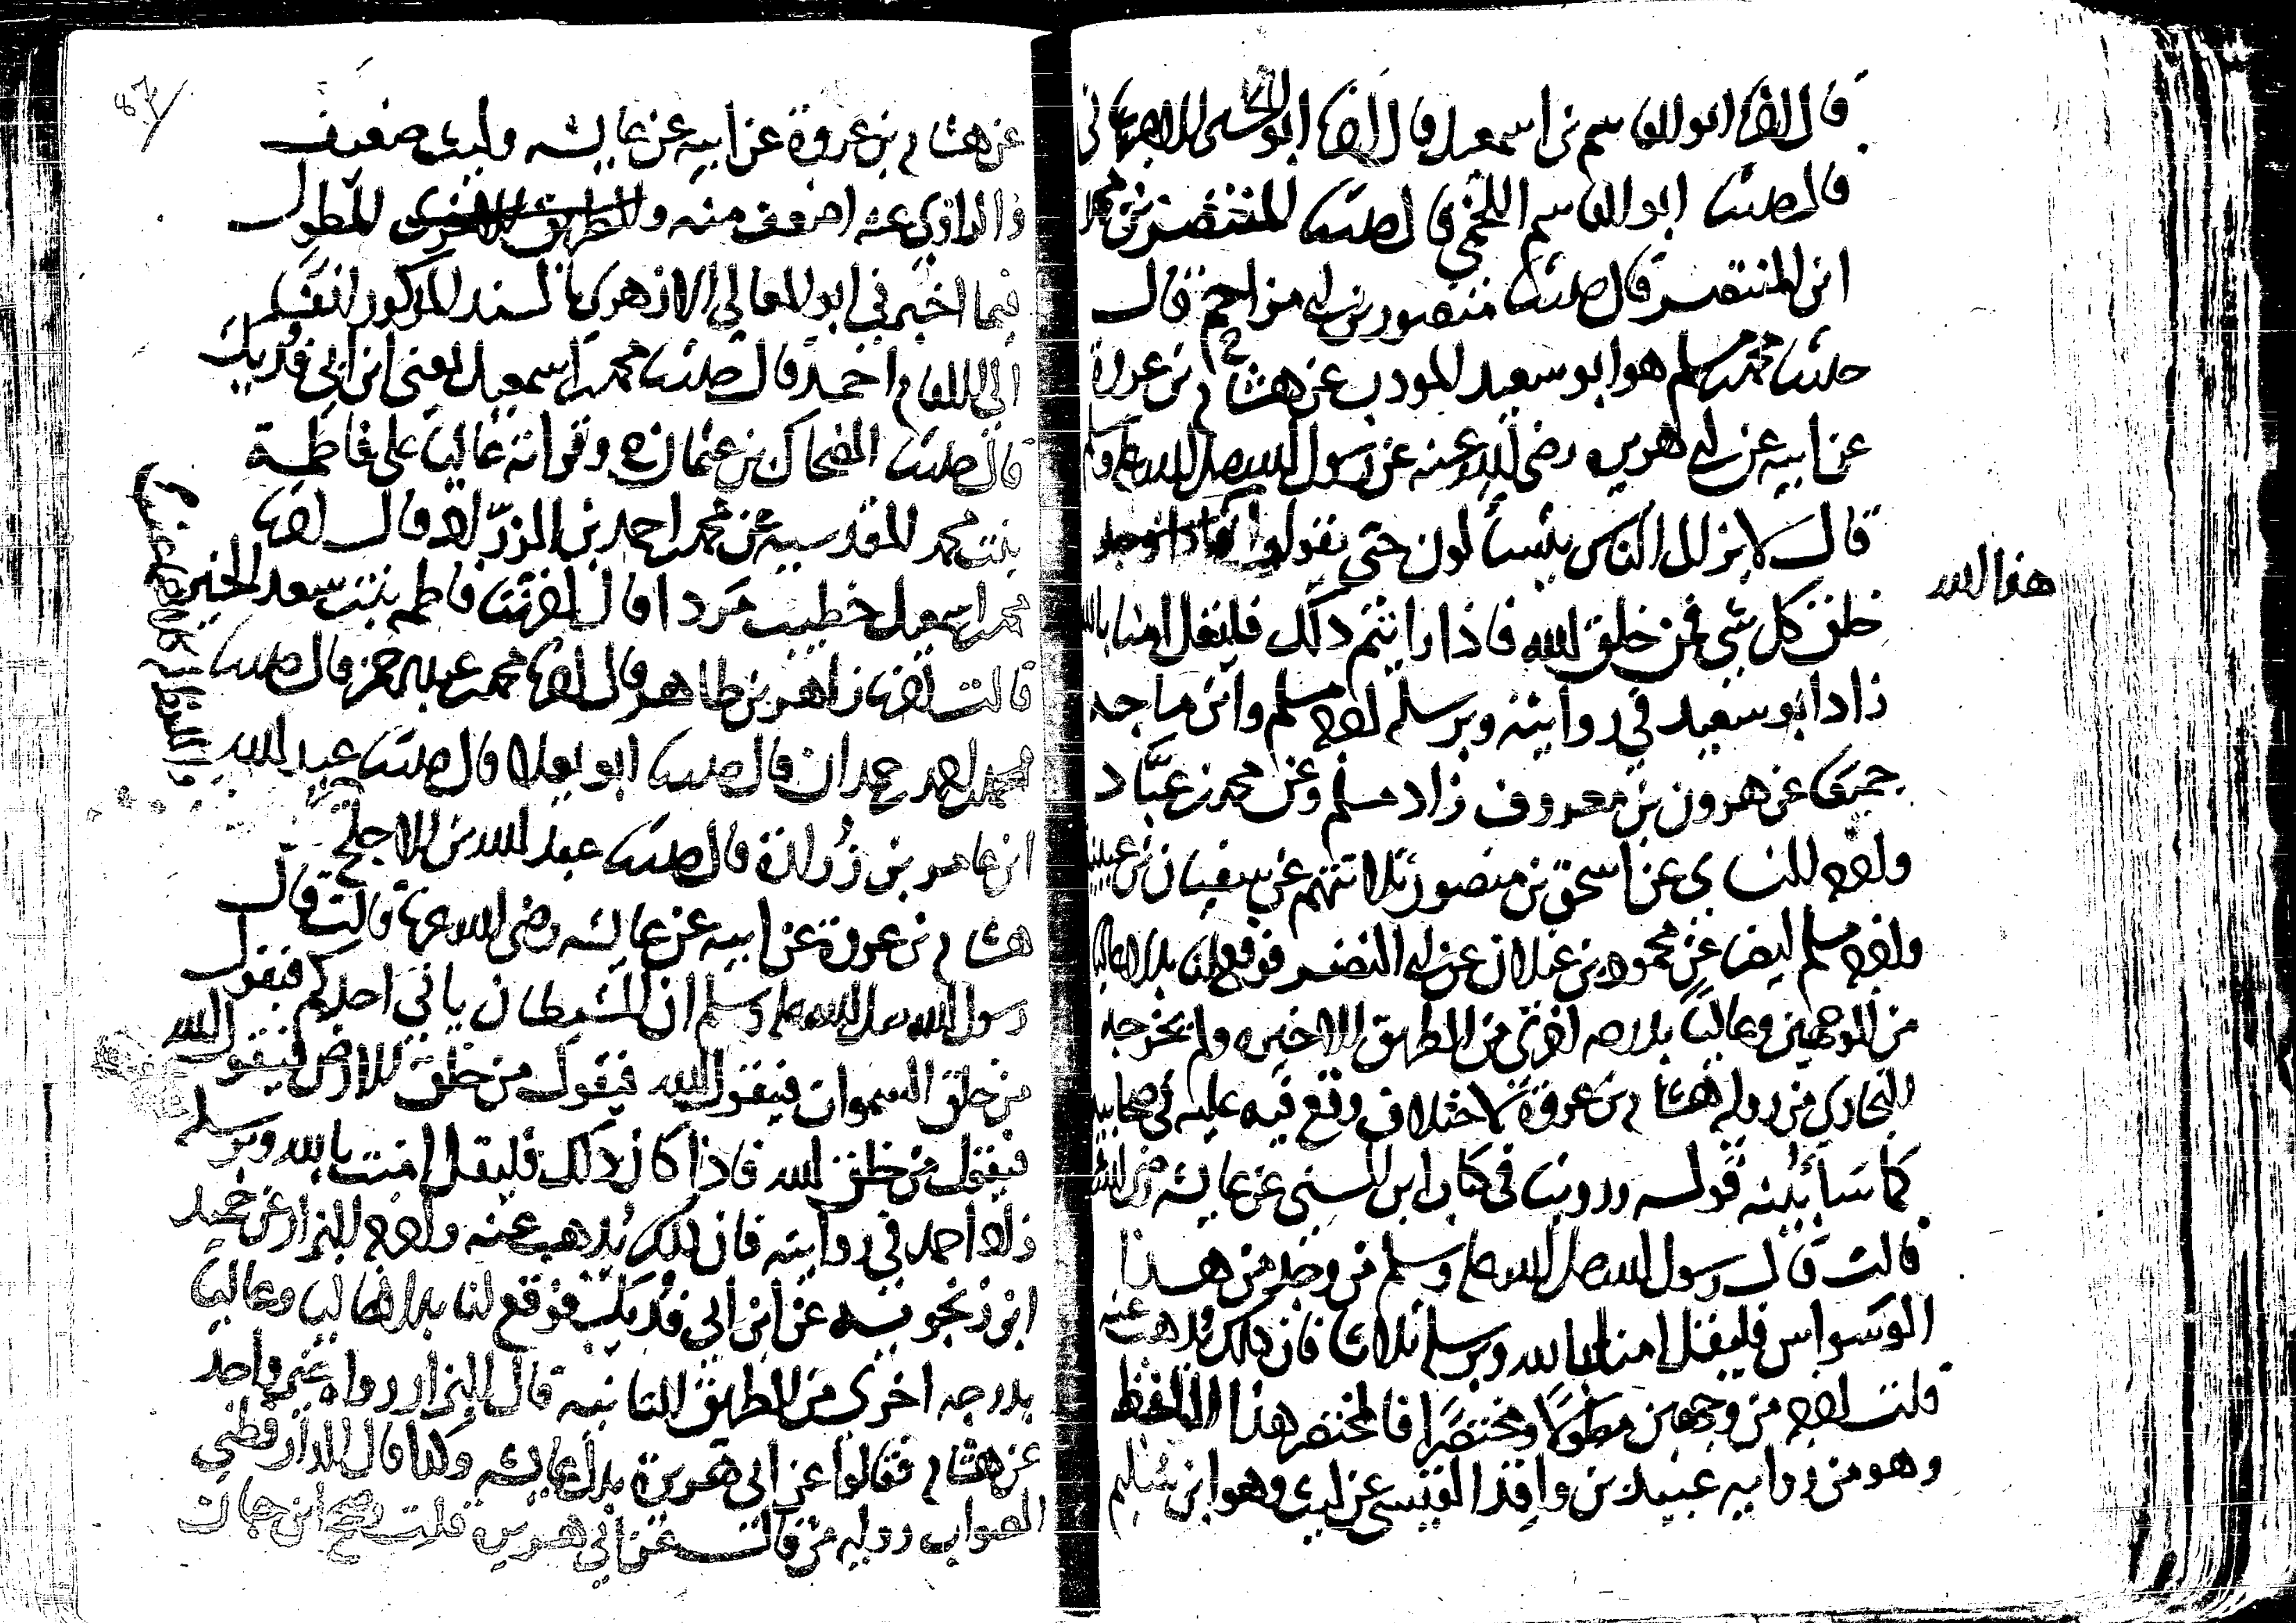 قال انا ابو القاسم بن اسمعيل قال انا ابو الحسن الاصبهاني
قال حدثنا ابو القاسم اللخمي قال حدثنا المنتصر بن محمد
ابن المنتصر قال حدثنا منصور بن ابي مزاحم قال
حدثنا محمد بن مسلم هو ابو سعيد المودب عن هشام بن عروة
عن ابيه عن ابي هريرة رضي الله عنه عن رسول الله صلى الله عليه وسلم
قال لا يزال الناس يتسألون حتى يقولوا
هذا الله
خلق كل شي فمن خلق الله فاذا رايتم ذلك فليقل امنا بالله
زاد ابو سعيد في روايته وبرسله اخرجه مسلم وابن ماجه
جميعا عن هرون بن معروف زاد مسلم وعن محمد بن عباد
واخرجه النساي عن اسحق بن منصور ثلاثتهم عن سفيان بن عيينة
واخرجه مسلم ايضا عن محمود بن غيلان عن ابي النضر فوقع لنا بدلا عاليا
من الوجهين وعاليا بدرجه اخرى من الطريق الاخيره ولم يخرجه
البخاري من روايه هشام بن عروة لاختلاف وقع فيه عليه في صحابيه
كما سأبينه قوله وروينا في كتاب ابن السني عن عايشه رضي الله عنها
قالت قال رسول الله صلى الله عليه وسلم من وجد من هذا
الوسواس فليقل امنا بالله وبرسله ثلاثا فان ذلك يذهب عنه
قلت اخرجه من وجهين مطولا ومختصرا فالمختصر هذا اللفظ
وهو من روايه عبيد بن واقد القيسي عن ليث وهو ابن سليم
87
عن هشام بن عروة عن ابيه عن عايشه وليث ضعيف
والراوي عنه اضعف منه والطريق الاخرى المطول
فيما اخبرني ابو المعالي الازهري بالسند المذكور انفا
الى الامام احمد قال حدثنا محمد بن اسمعيل يعني ابن ابي فديك
قال حدثنا الضحاك بن عثمان ح وقراته عاليا على فاطمة
بنت محمد المقدسية عن محمد بن احمد بن الزراد قال انا
محمد بن اسمعيل خطيب مردا قال اخبرتنا فاطمه بنت سعد الخير
قالت انا زاهر بن طاهر قال انا محمد بن عبد الرحمن قال حدثنا
محمد بن احمد بن حمدان قال حدثنا ابو يعلا قال حدثنا عبد الله
ابن عامر بن زرارة قال حدثنا عبد الله بن الاجلح
هشام بن عروة عن ابيه عن عايشه رضي الله عنها قالت قال
رسول الله صلى الله عليه وسلم ان الشيطان ياتي احدكم فيقول
من خلق السموات فيقول الله فيقول من خلق الارض فيقول الله
فيقول من خلق الله فاذا كان ذلك فليقل امنت بالله وبرسله
زاد احمد في روايته فان ذلك يذهب عنه واخرجه البزار عن حميد
ابن زنجويه عن ابن ابي فديك فوقع لنا بدلا عاليا وعاليا
بدرجه اخرى من الطريق الثانيه قال البزار رواه غير واحد
عن هشام فقالوا عن ابي هريرة بدل عايشه وكذا قال الدارقطني
الصواب روايه من قال عن ابي هريرة قلت صحح ابن حبان